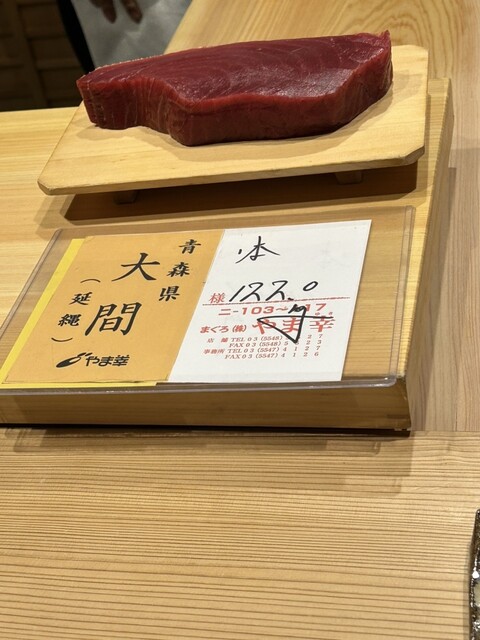 青森県
大間
(延縄)
やま幸
本
様 122.0
ニ-103~
7
まぐろ(株)やま幸
店 舗 TEL03(5548)
27
FAX03(5548)5
23
事務所 TEL03(5547)4127
FAX03(5547)4126